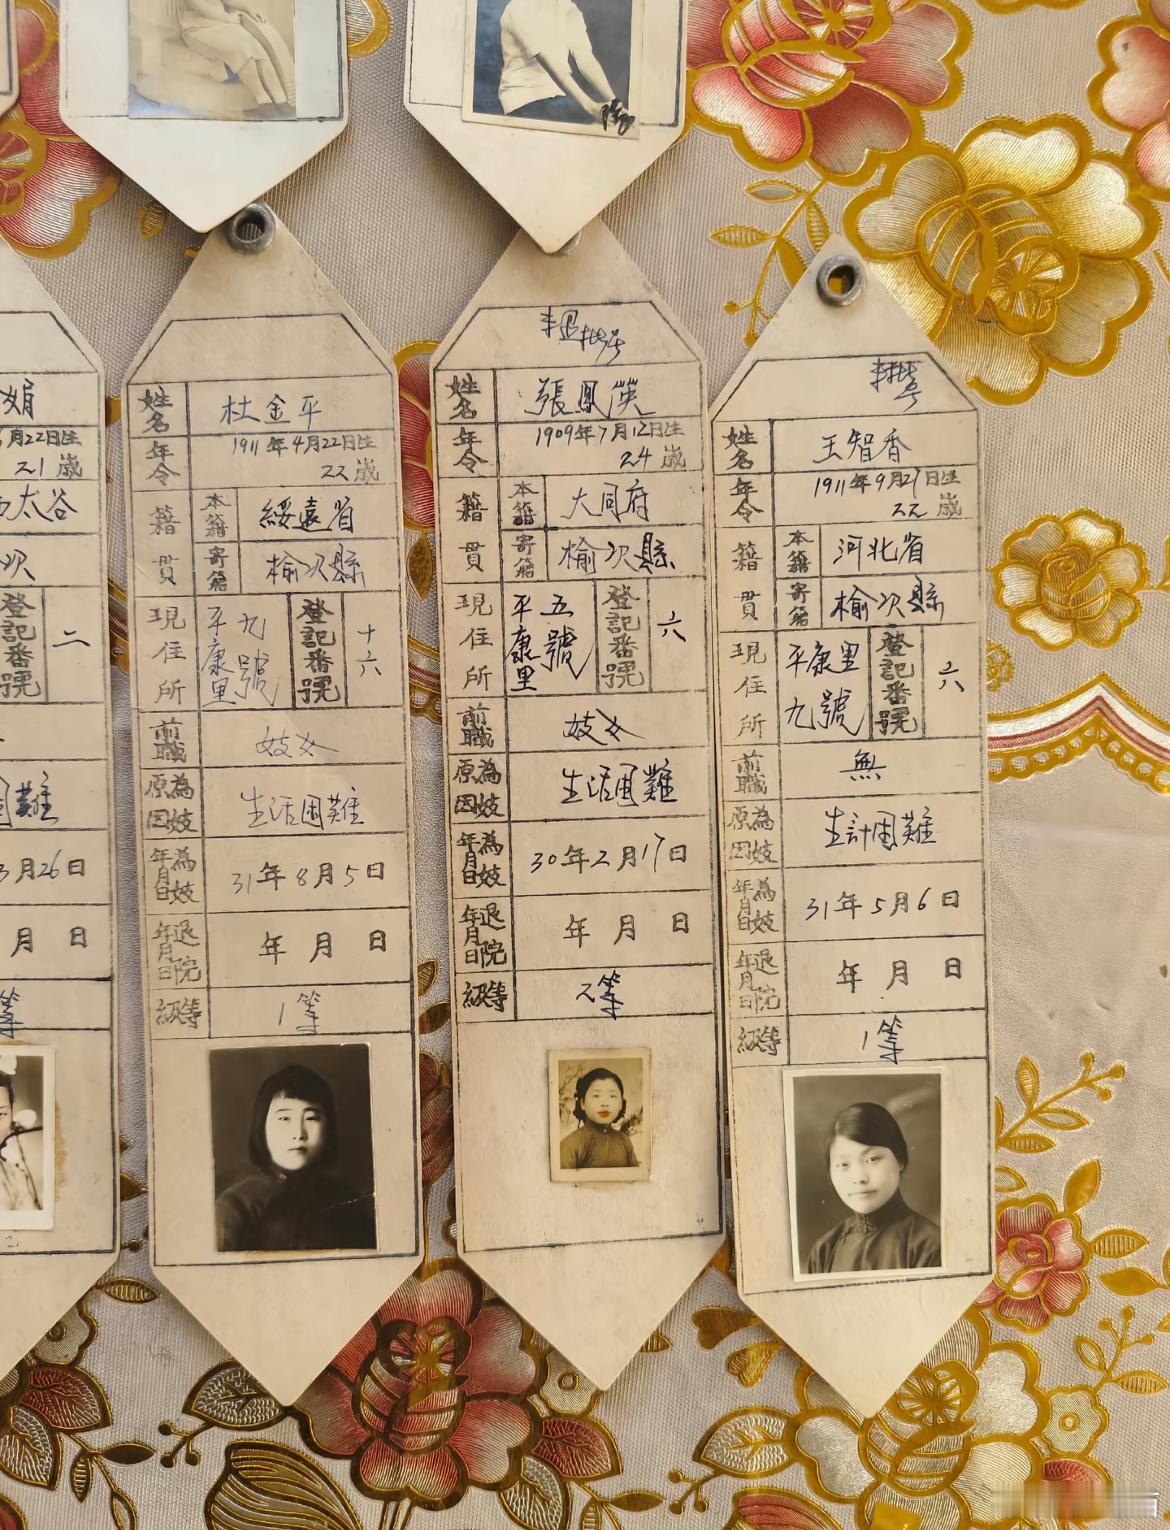 娟
月22日生
21歲
太谷
次
登記番號
二
難
月26日
月 日
等
姓名
杜金平
年令
1911年4月22日生
22歲
籍貫
本籍
綏遠省
寄籍
榆次縣
現住所
平康里
九號
登記番號
十六
前職
妓女
為妓原因
生活困難
為妓年月日
31年8月5日
退院年月日
年 月 日
等級
1等
姓名
張鳳英
年令
1909年7月12日生
24歲
籍貫
本籍
大同府
寄籍
榆次縣
現住所
平康里
五號
登記番號
六
前職
妓女
為妓原因
生活困難
為妓年月日
30年2月17日
退院年月日
年 月 日
等級
2等
姓名
王智香
年令
1911年9月21日生
22歲
籍貫
本籍
河北省
寄籍
榆次縣
現住所
平康里
九號
登記番號
六
前職
無
為妓原因
生計困難
為妓年月日
31年5月6日
退院年月日
年 月 日
等級
1等